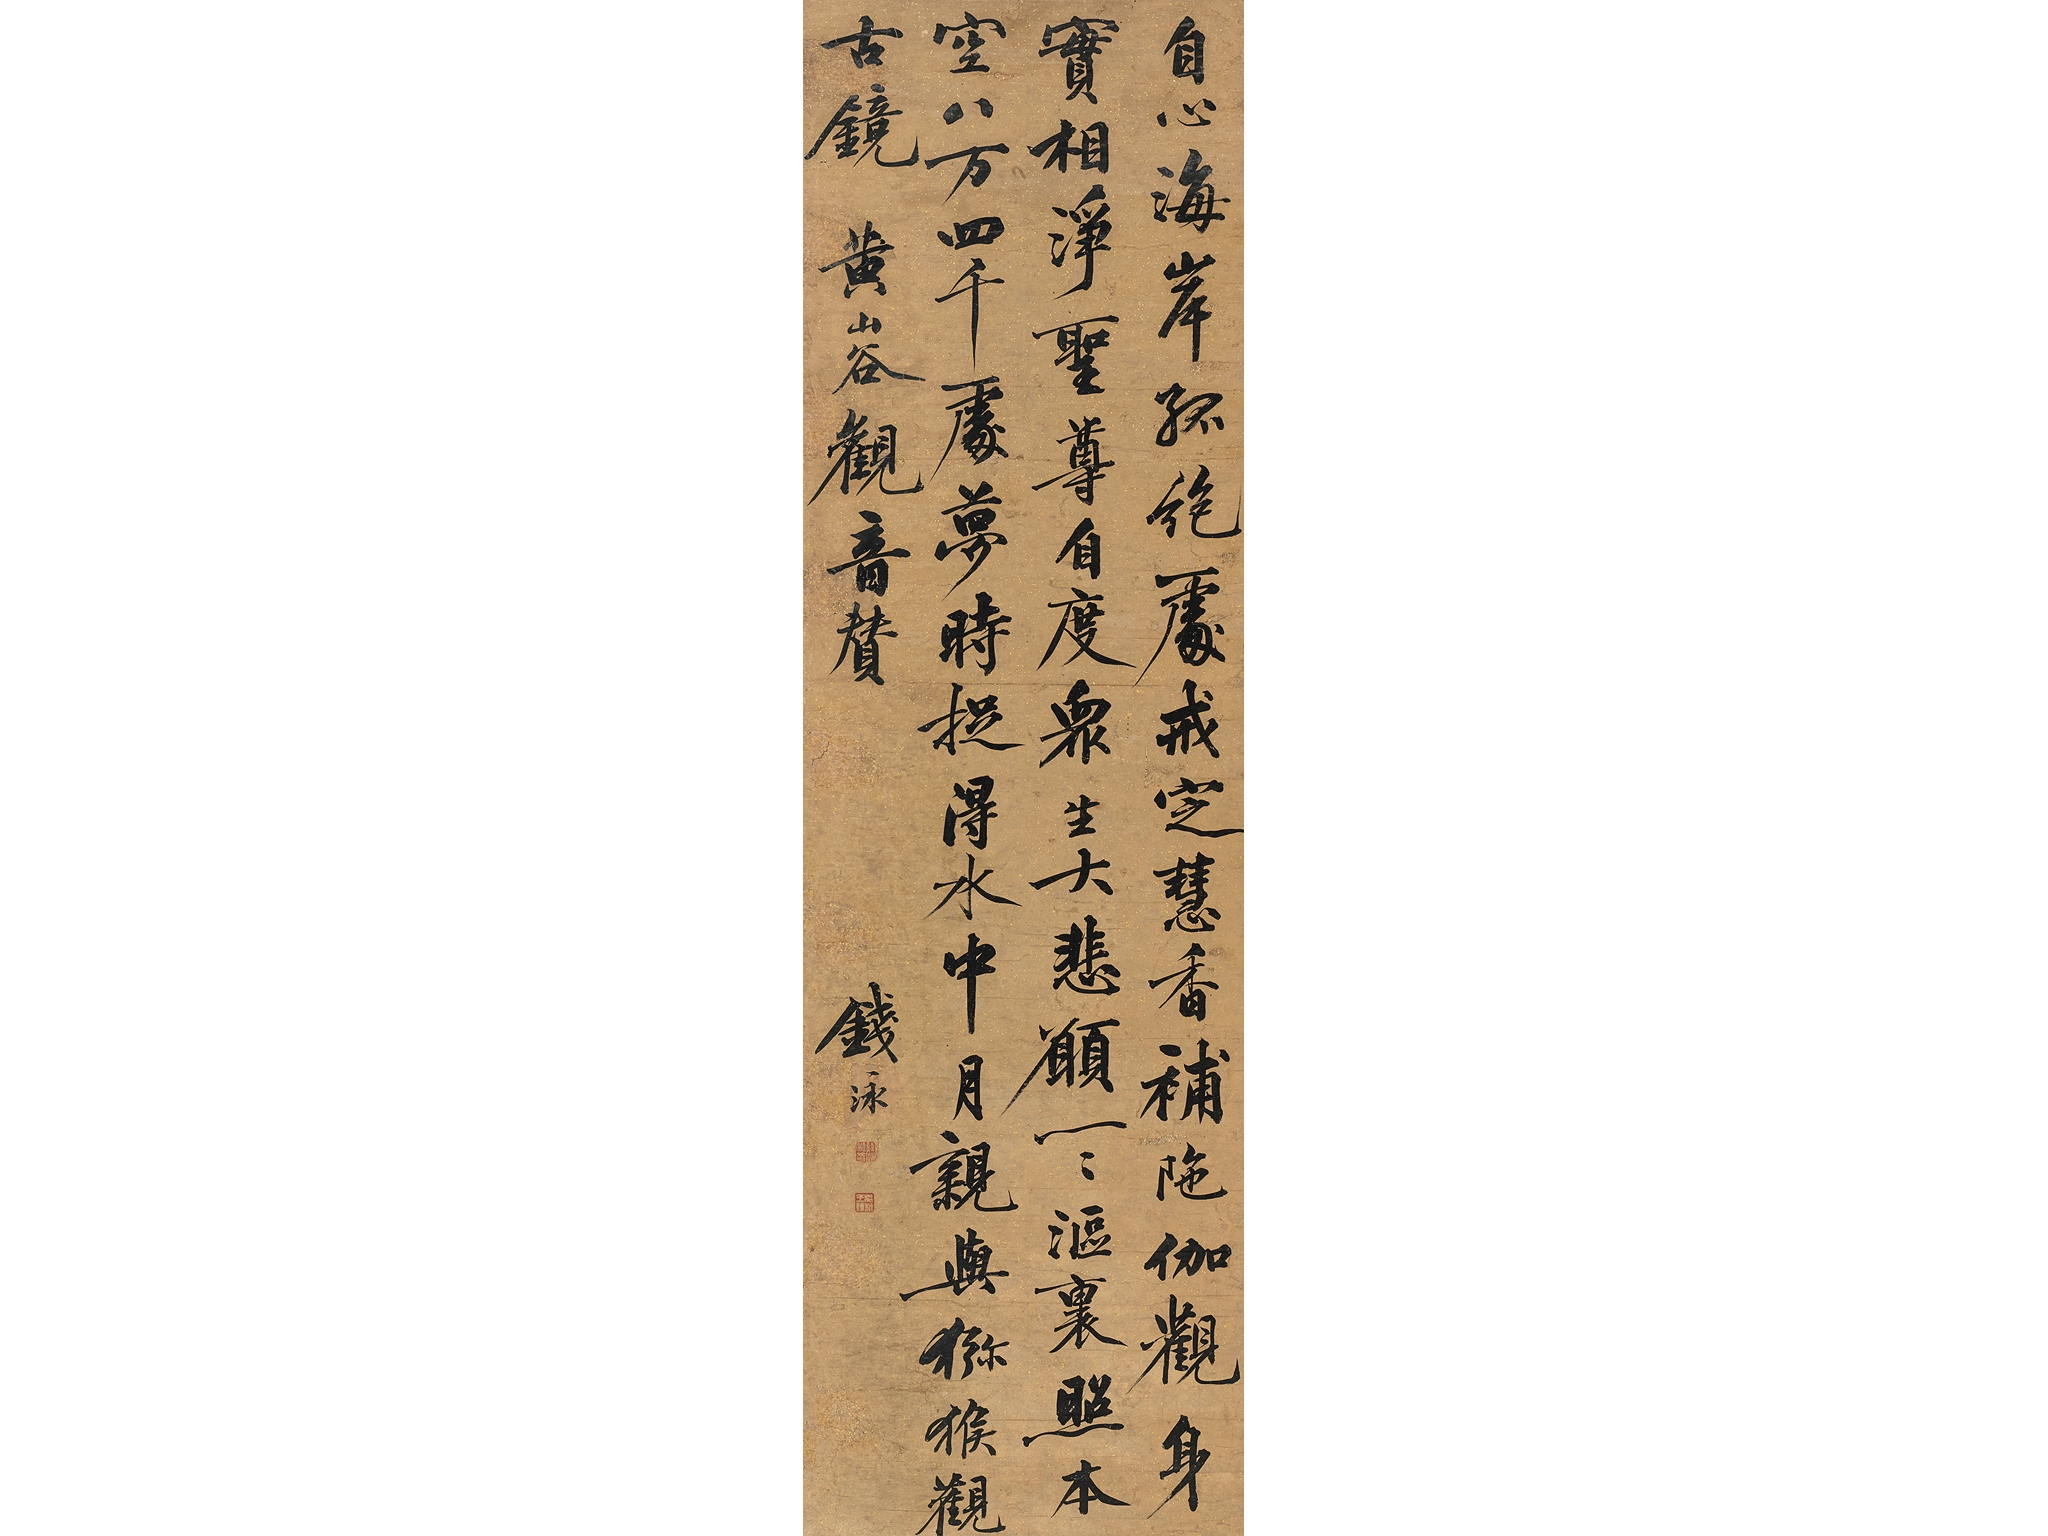 自心海岸孤絶處戒定慧香補陁伽觀身
實相淨聖尊自度衆生大悲願一〻漚裏照本
空八万四千處夢時捉得水中月親與獼猴觀
古鏡 黄山谷觀音賛 錢泳